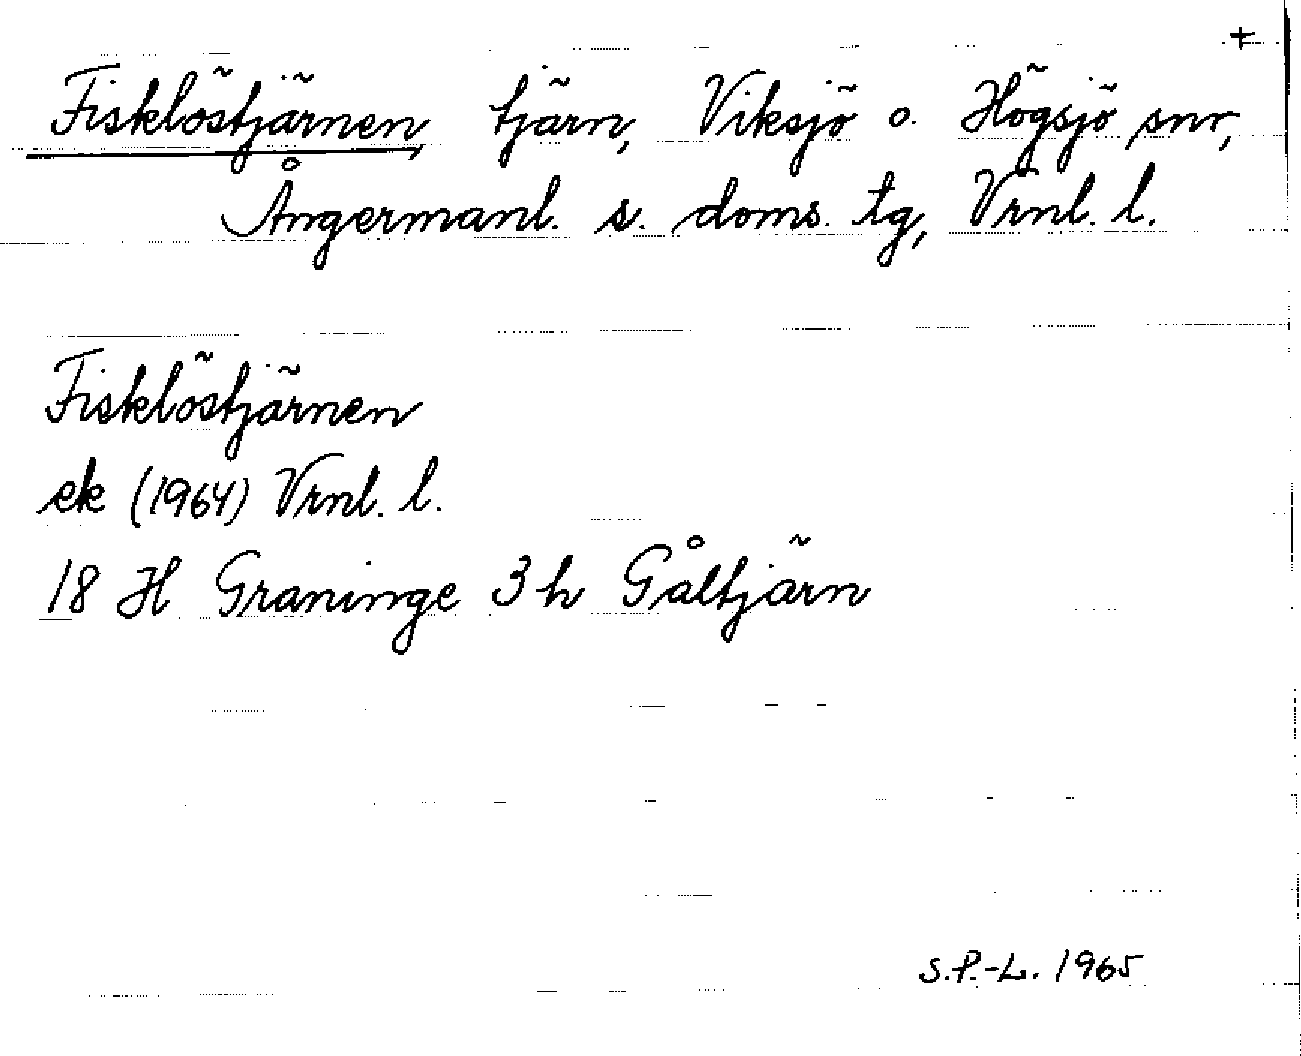 +
Fisklöstjärnen, tjärn, Viksjö o. Högsjö snr,
Ångermanl. s. doms. tg, Vrnl. l.
Fisklöstjärnen
ek (1964) Vrnl. l.
18 H Graninge 3 h Gåltjärn
S.P.-L. 1965